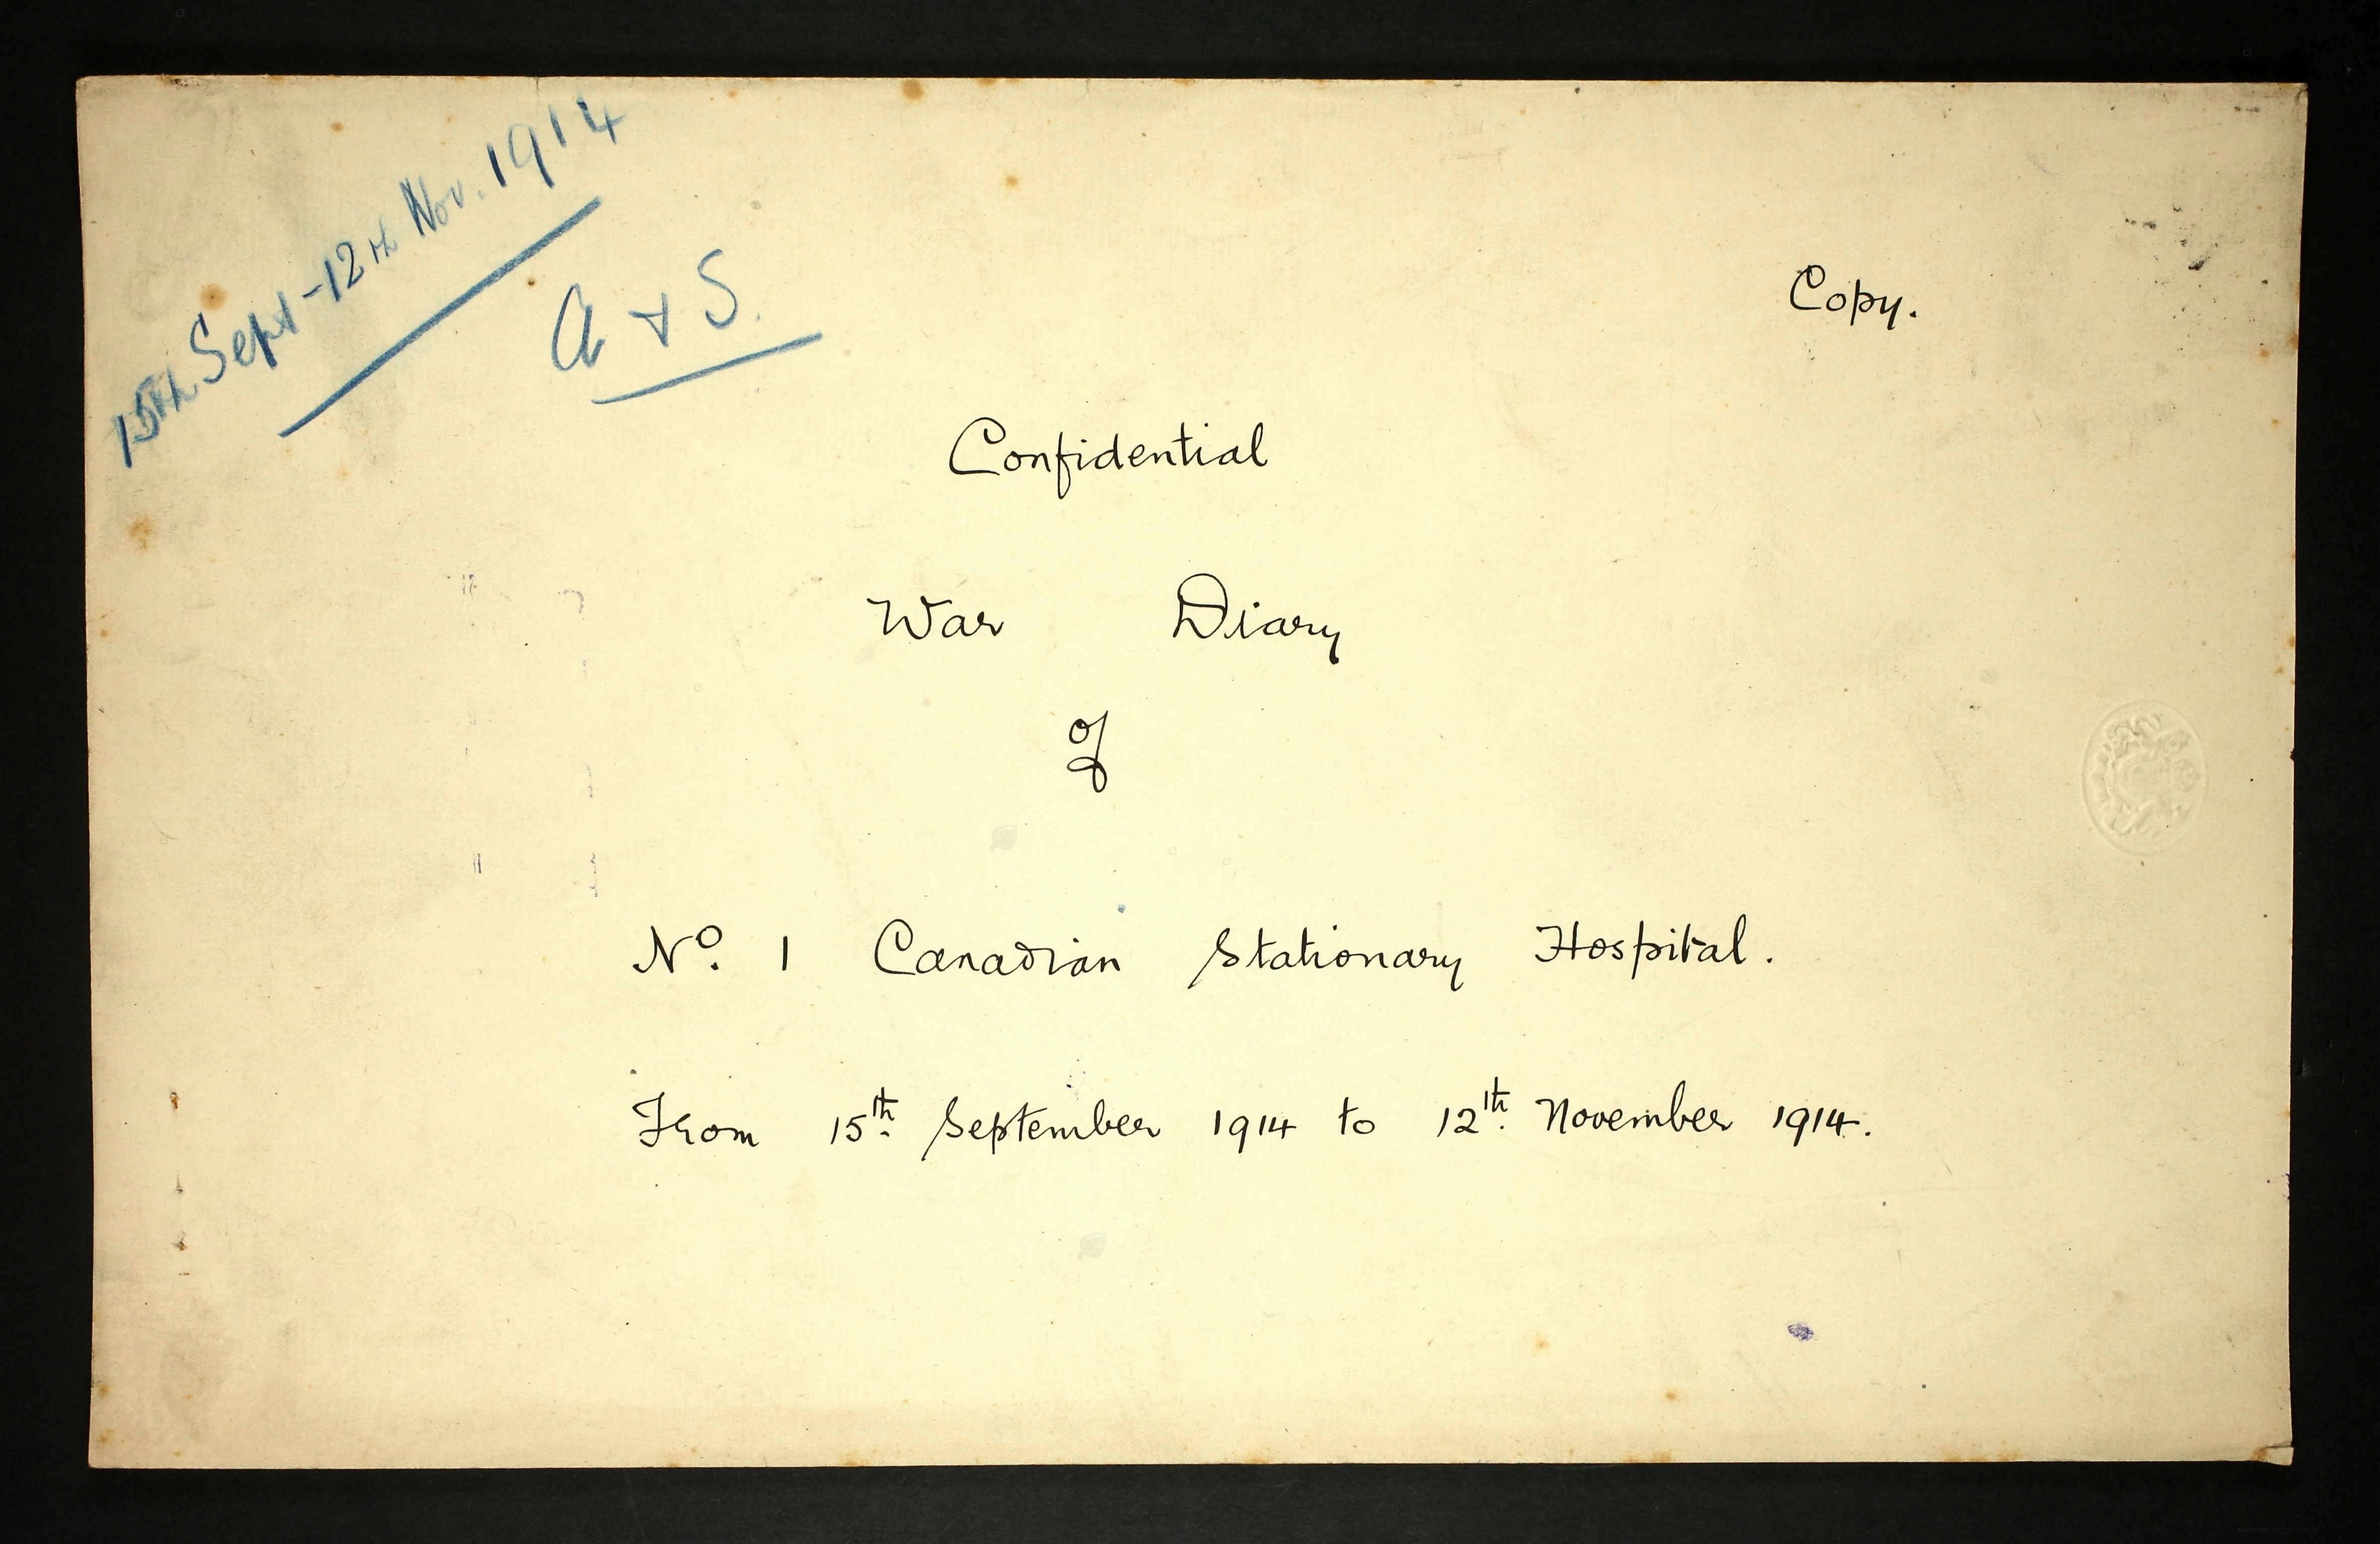 15th Sept - 12th Nov. 1914
A & S.
Copy.
Confidential
War Diary
of
No. 1 Canadian Stationary Hospital.
From 15th September 1914 to 12th November 1914.